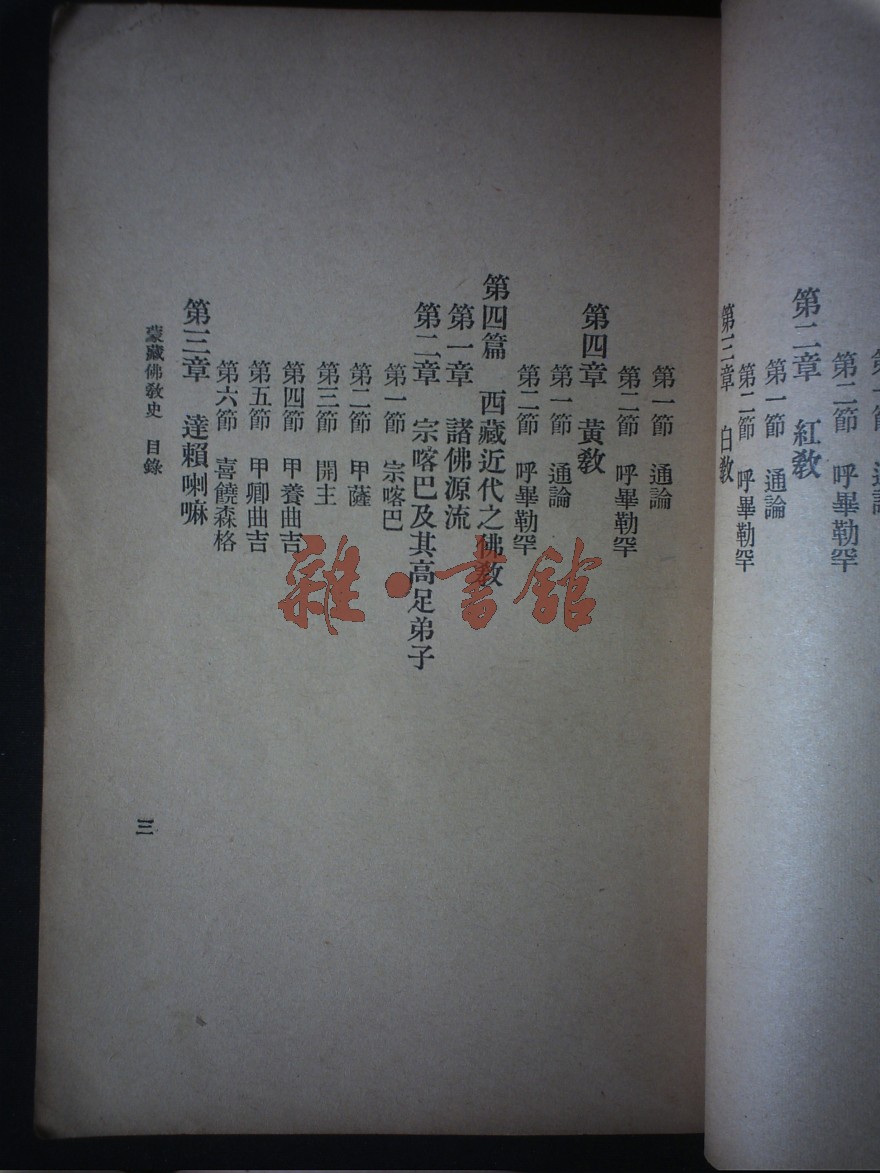 第二節　呼畢勒罕
第二章　紅教
第一節　通論
第二節　呼畢勒罕
第三章　白教
第一節　通論
第二節　呼畢勒罕
第四章　黃教
第一節　通論
第二節　呼畢勒罕
第四篇　西藏近代之佛教
第一章　諸佛源流
第二章　宗喀巴及其高足弟子
第一節　宗喀巴
第二節　甲薩
第三節　開主
第四節　甲養曲吉
第五節　甲卿曲吉
第六節　喜饒森格
第三章　達賴喇嘛
蒙藏佛教史　目錄
三
雜·書館